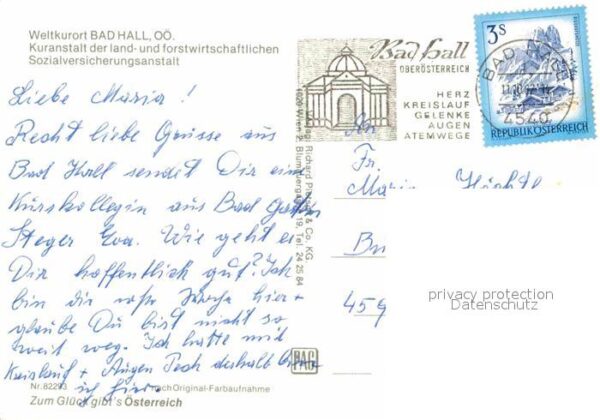 Weltkurort BAD HALL, OÖ.
Kuranstalt der land- und forstwirtschaftlichen
Sozialversicherungsanstalt
Bad Hall
OBERÖSTERREICH
HERZ
KREISLAUF
GELENKE
AUGEN
ATEMWEGE
3s
BAD HALL
4540
REPUBLIK ÖSTERREICH
Liebe Maria!
Recht liebe Grüsse aus
Bad Hall sendet Dir eine
Kurskollegin aus Bad
Steger Eva. Wie geht es
Dir hoffentlich gut? Ich
bin die Woche hier +
glaube Du bist nicht so
weit weg. Ich hatte mit
Kreislauf + Augen Pech deshalb bin
ich hier.
An
Fr.
Maria
459
Verlag Richard Pietsch & Co. KG
1020 Wien 2, Tel. 24 25 84
PAG
Nr. 82293
nach Original-Farbaufnahme
Zum Glück gibt's Österreich
privacy protection
Datenschutz